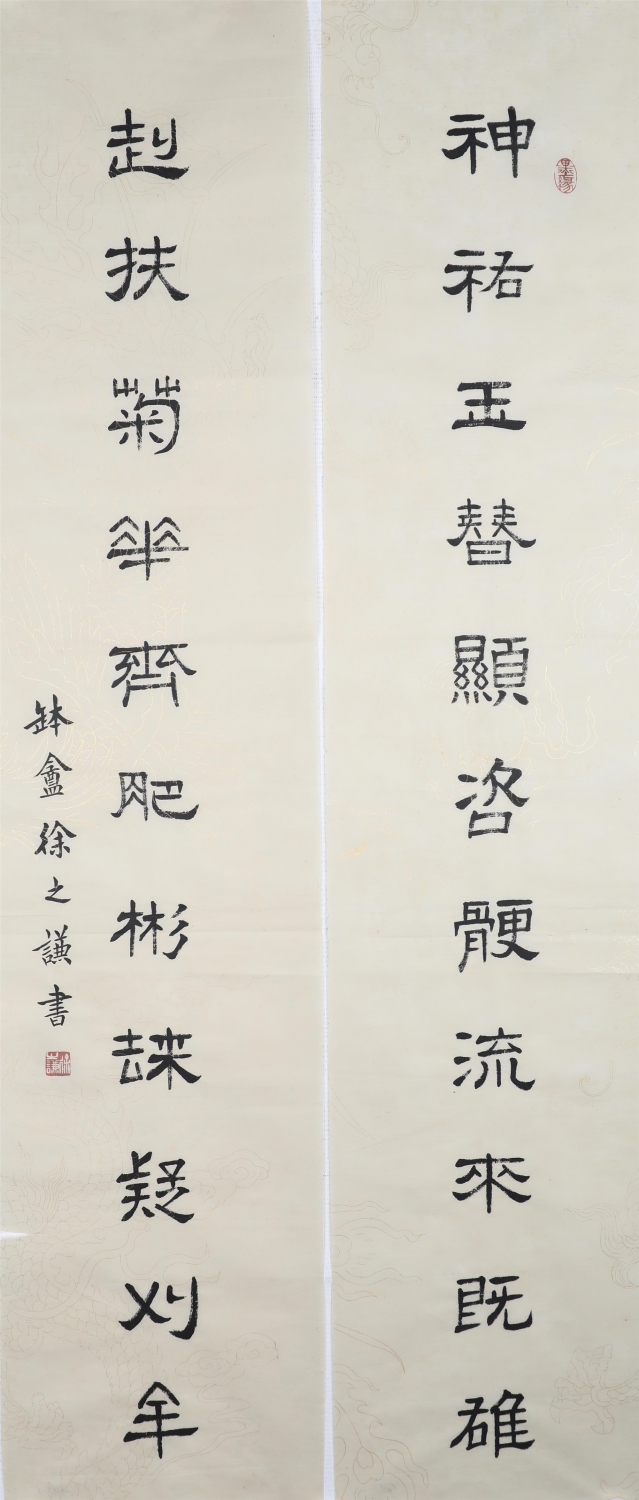 神祐玉替顯咨骾流來既雄
赳扶菊華齊肥彬䅘疑刈年
缽盦徐之謙書